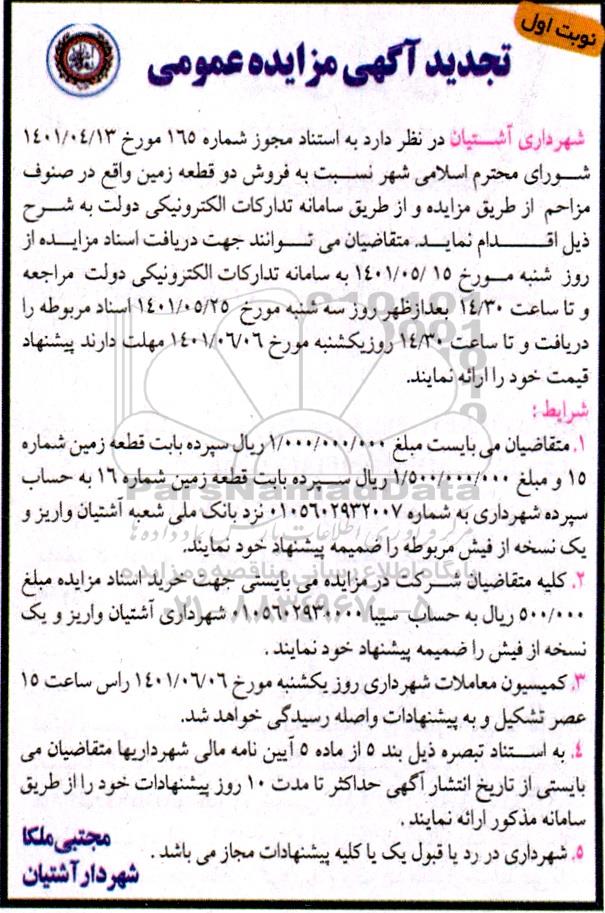 نوبت اول
تجدید آگهی مزایده عمومی
شهرداری آشتیان در نظر دارد به استناد مجوز شماره ۱۶۵ مورخ ۱۴۰۱/۰۴/۱۳
شورای محترم اسلامی شهر نسبت به فروش دو قطعه زمین واقع در صنوف
مزاحم از طریق مزایده و از طریق سامانه تدارکات الکترونیکی دولت به شرح
ذیل اقدام نماید. متقاضیان می توانند جهت دریافت اسناد مزایده از
روز شنبه مورخ ۱۵ /۱۴۰۱/۰۵ به سامانه تدارکات الکترونیکی دولت مراجعه
و تا ساعت ۱۴/۳۰ بعدازظهر روز سه شنبه مورخ ۱۴۰۱/۰۵/۲۵ اسناد مربوطه را
دریافت و تا ساعت ۱۴/۳۰ روزیکشنبه مورخ ۱۴۰۱/۰۶/۰۶ مهلت دارند پیشنهاد
قیمت خود را ارائه نمایند.
شرایط :
۱. متقاضیان می بایست مبلغ ۱/۰۰۰/۰۰۰/۰۰۰ ریال سپرده بابت قطعه زمین شماره
۱۵ و مبلغ ۱/۵۰۰/۰۰۰/۰۰۰ ریال سپرده بابت قطعه زمین شماره ۱۶ به حساب
سپرده شهرداری به شماره ۰۱۰۵۶۰۲۹۳۲۰۰۷ نزد بانک ملی شعبه آشتیان واریز و
یک نسخه از فیش مربوطه را ضمیمه پیشنهاد خود نمایند.
۲. کلیه متقاضیان شرکت در مزایده می بایستی جهت خرید اسناد مزایده مبلغ
۵۰۰/۰۰۰ ریال به حساب سیبا ۰۱۰۵۶۰۲۹۳۰۰۰۰ شهرداری آشتیان واریز و یک
نسخه از فیش را ضمیمه پیشنهاد خود نمایند .
۳. کمیسیون معاملات شهرداری روز یکشنبه مورخ ۱۴۰۱/۰۶/۰۶ راس ساعت ۱۵
عصر تشکیل و به پیشنهادات واصله رسیدگی خواهد شد.
۴. به استناد تبصره ذیل بند ۵ از ماده ۵ آیین نامه مالی شهرداریها متقاضیان می
بایستی از تاریخ انتشار آگهی حداکثر تا مدت ۱۰ روز پیشنهادات خود را از طریق
سامانه مذکور ارائه نمایند .
۵. شهرداری در رد یا قبول یک یا کلیه پیشنهادات مجاز می باشد .
مجتبی ملکا
شهردار آشتیان
ParsNamadData
پایگاه اطلاع رسانی مناقصه و مزایده
۰۲۱-۸۸۳۴۹۶۷۰-۵